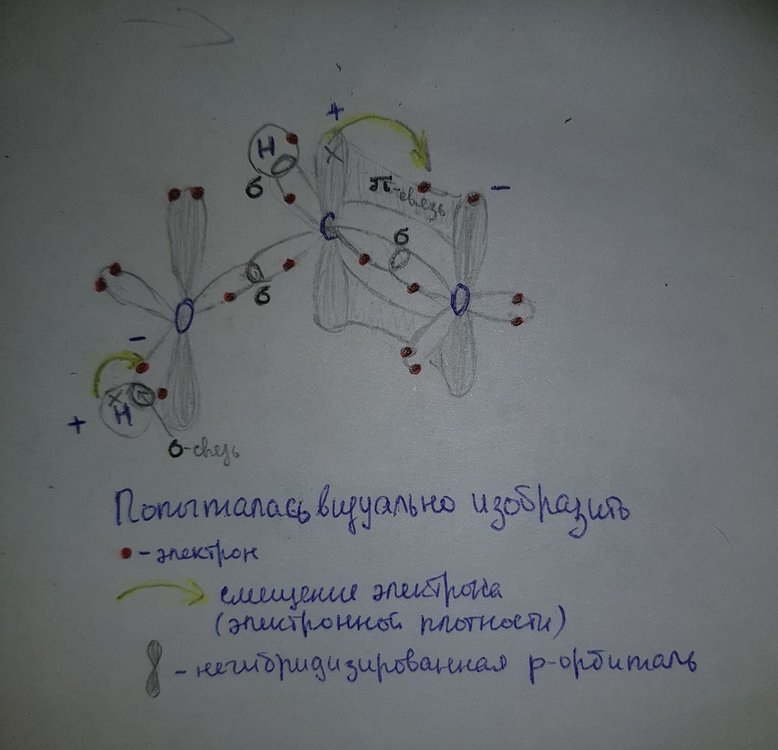 +
H
б
π-связь
-
C
б
O
б
O
-
+
H
б-связь
Попыталась визуально изобразить
- электрон
смещение электрона
(электронной плотности)
- негибридизированная р-орбиталь